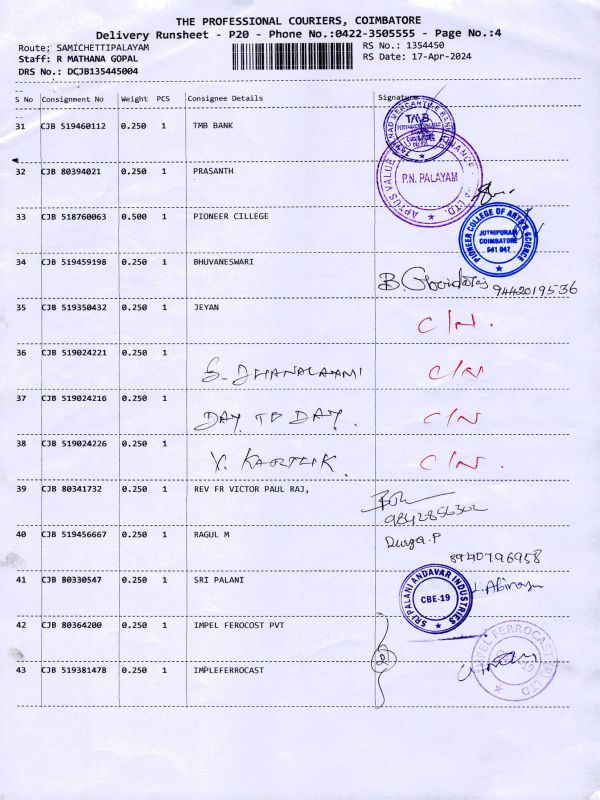 THE PROFESSIONAL COURIERS, COIMBATORE
Delivery Runsheet - P20 - Phone No.:0422-3505555 - Page No.:4
Route: SAMICHETTIPALAYAM RS No.: 1354450
Staff: R MATHANA GOPAL RS Date: 17-Apr-2024
DRS No.: DCJB135445004
S No Consignment No Weight PCS Consignee Details Signature
31 CJB 519460112 0.250 1 TMB BANK
TMB
32 CJB 80394021 0.250 1 PRASANTH
APTUS VALUE FINANCE LTD.
P.N. PALAYAM
33 CJB 518760063 0.500 1 PIONEER CILLEGE
PIONEER COLLEGE OF ARTS & SCIENCE
JOTHIPURAM
COIMBATORE
641 047
34 CJB 519459198 0.250 1 BHUVANESWARI
B. Govindaraj 9442019536
35 CJB 519350432 0.250 1 JEYAN C/N.
36 CJB 519024221 0.250 1 S. DHANALAXMI C/N
37 CJB 519024216 0.250 1 DAY TO DAY. C/N
38 CJB 519024226 0.250 1 V. KARTHIK. C/N.
39 CJB 80341732 0.250 1 REV FR VICTOR PAUL RAJ,
9842856302
40 CJB 519456667 0.250 1 RAGUL M Durga.P
8940796958
41 CJB 80330547 0.250 1 SRI PALANI
SRI PALANI ANDAVAR INDUSTRIES
CBE-19
42 CJB 80364200 0.250 1 IMPEL FEROCOST PVT
2
43 CJB 519381478 0.250 1 IMPLEFERROCAST